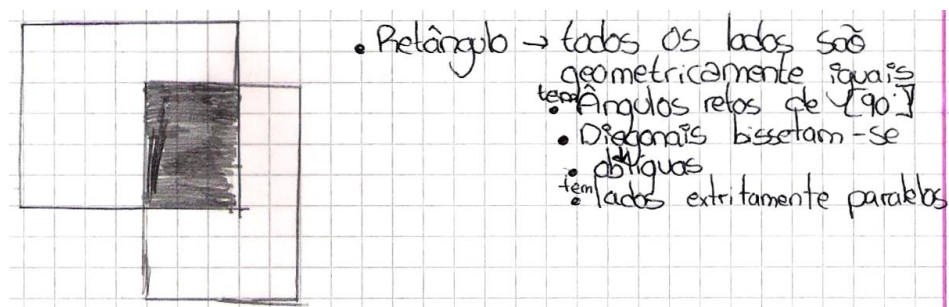 • Retângulo → todos os lados são
geometricamente iguais
• tem Ângulos retos de [90°]
• Diagonais bissetam-se
• oblíquas
• têm lados extritamente paralelos